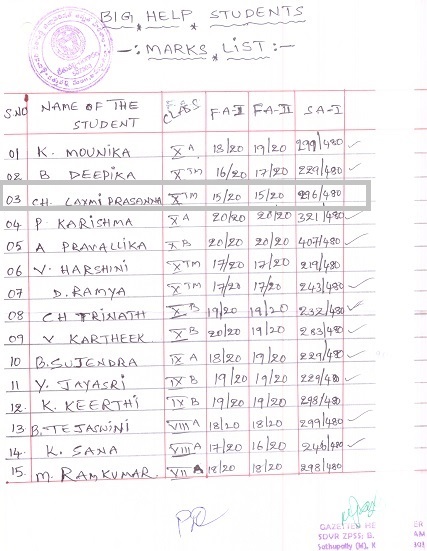 BIG HELP STUDENTS
-: MARKS LIST :-
S.NO NAME OF THE STUDENT CLASS FA-I FA-II SA-I
01 K. MOUNIKA X A 18/20 19/20 299/480
02 B DEEPIKA X TM 16/20 17/20 229/480
03 CH. LAXMI PRASANNA X TM 15/20 15/20 296/480
04 P KARISHMA X A 20/20 20/20 321/480
05 A PRAVALLIKA X B 20/20 20/20 407/480
06 V. HARSHINI X TM 17/20 17/20 219/480
07 D. RAMYA X TM 17/20 17/20 243/480
08 CH TRINATH X B 19/20 19/20 232/480
09 V KARTHEEK X B 20/20 19/20 283/480
10 B. SUJENDRA IX A 18/20 19/20 229/480
11 Y. JAYASRI IX B 19/20 19/20 229/480
12. K. KEERTHI IX B 19/20 19/20 298/480
13 B. TEJASWINI VIII A 18/20 18/20 299/480
14 K. SANA VIII A 17/20 16/20 246/480
15. M. RAMKUMAR VII A 18/20 18/20 298/480
GAZETTED
SDVR ZPSS; B.
Sathupally (M),